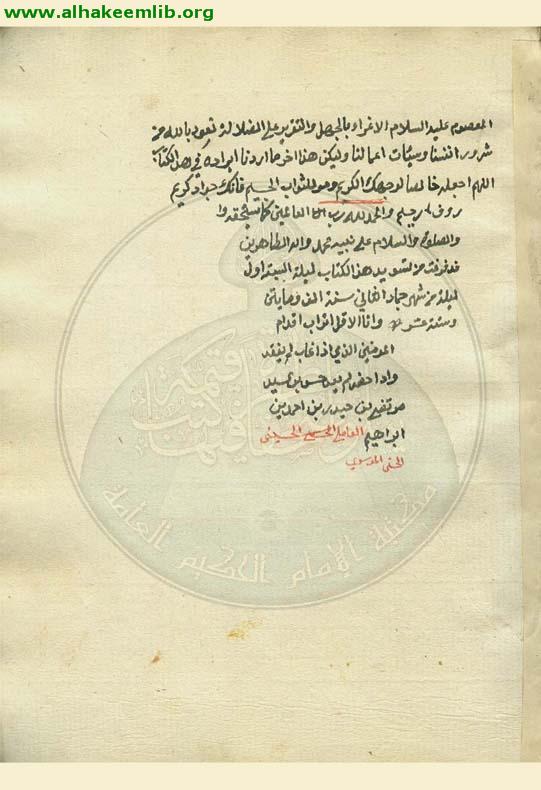 www.alhakeemlib.org
المعصوم عليه السلام الاغراء بالجهل والتقرير على الضلالة نعوذ بالله من
شرور انفسنا وسيئات اعمالنا وليكن هذا اخر ما اردنا ايراده في هذا الكتاب
اللهم اجعله خالصا لوجهك الكريم وموجبا للثواب الجسيم فانك جواد كريم
روف رحيم والحمد لله رب العالمين كما يستحقه
والصلوة والسلام على نبيه محمد واله الطاهرين
قد فرغت من تسويد هذا الكتاب ليلة السبت اول
ليلة من شهر جماد الثاني سنة الف ومايتين
وستة عشر وانا الاقل تراب اقدام
المومنين الذي اذا غاب لم يفتقد
واذا حضر لم يعد حسن بن سيد
مرتضى بن حيدر بن احمد بن
ابراهيم العاملي الحسيني
الحسني الموسوي
مكتبة الإمام الحكيم العامة